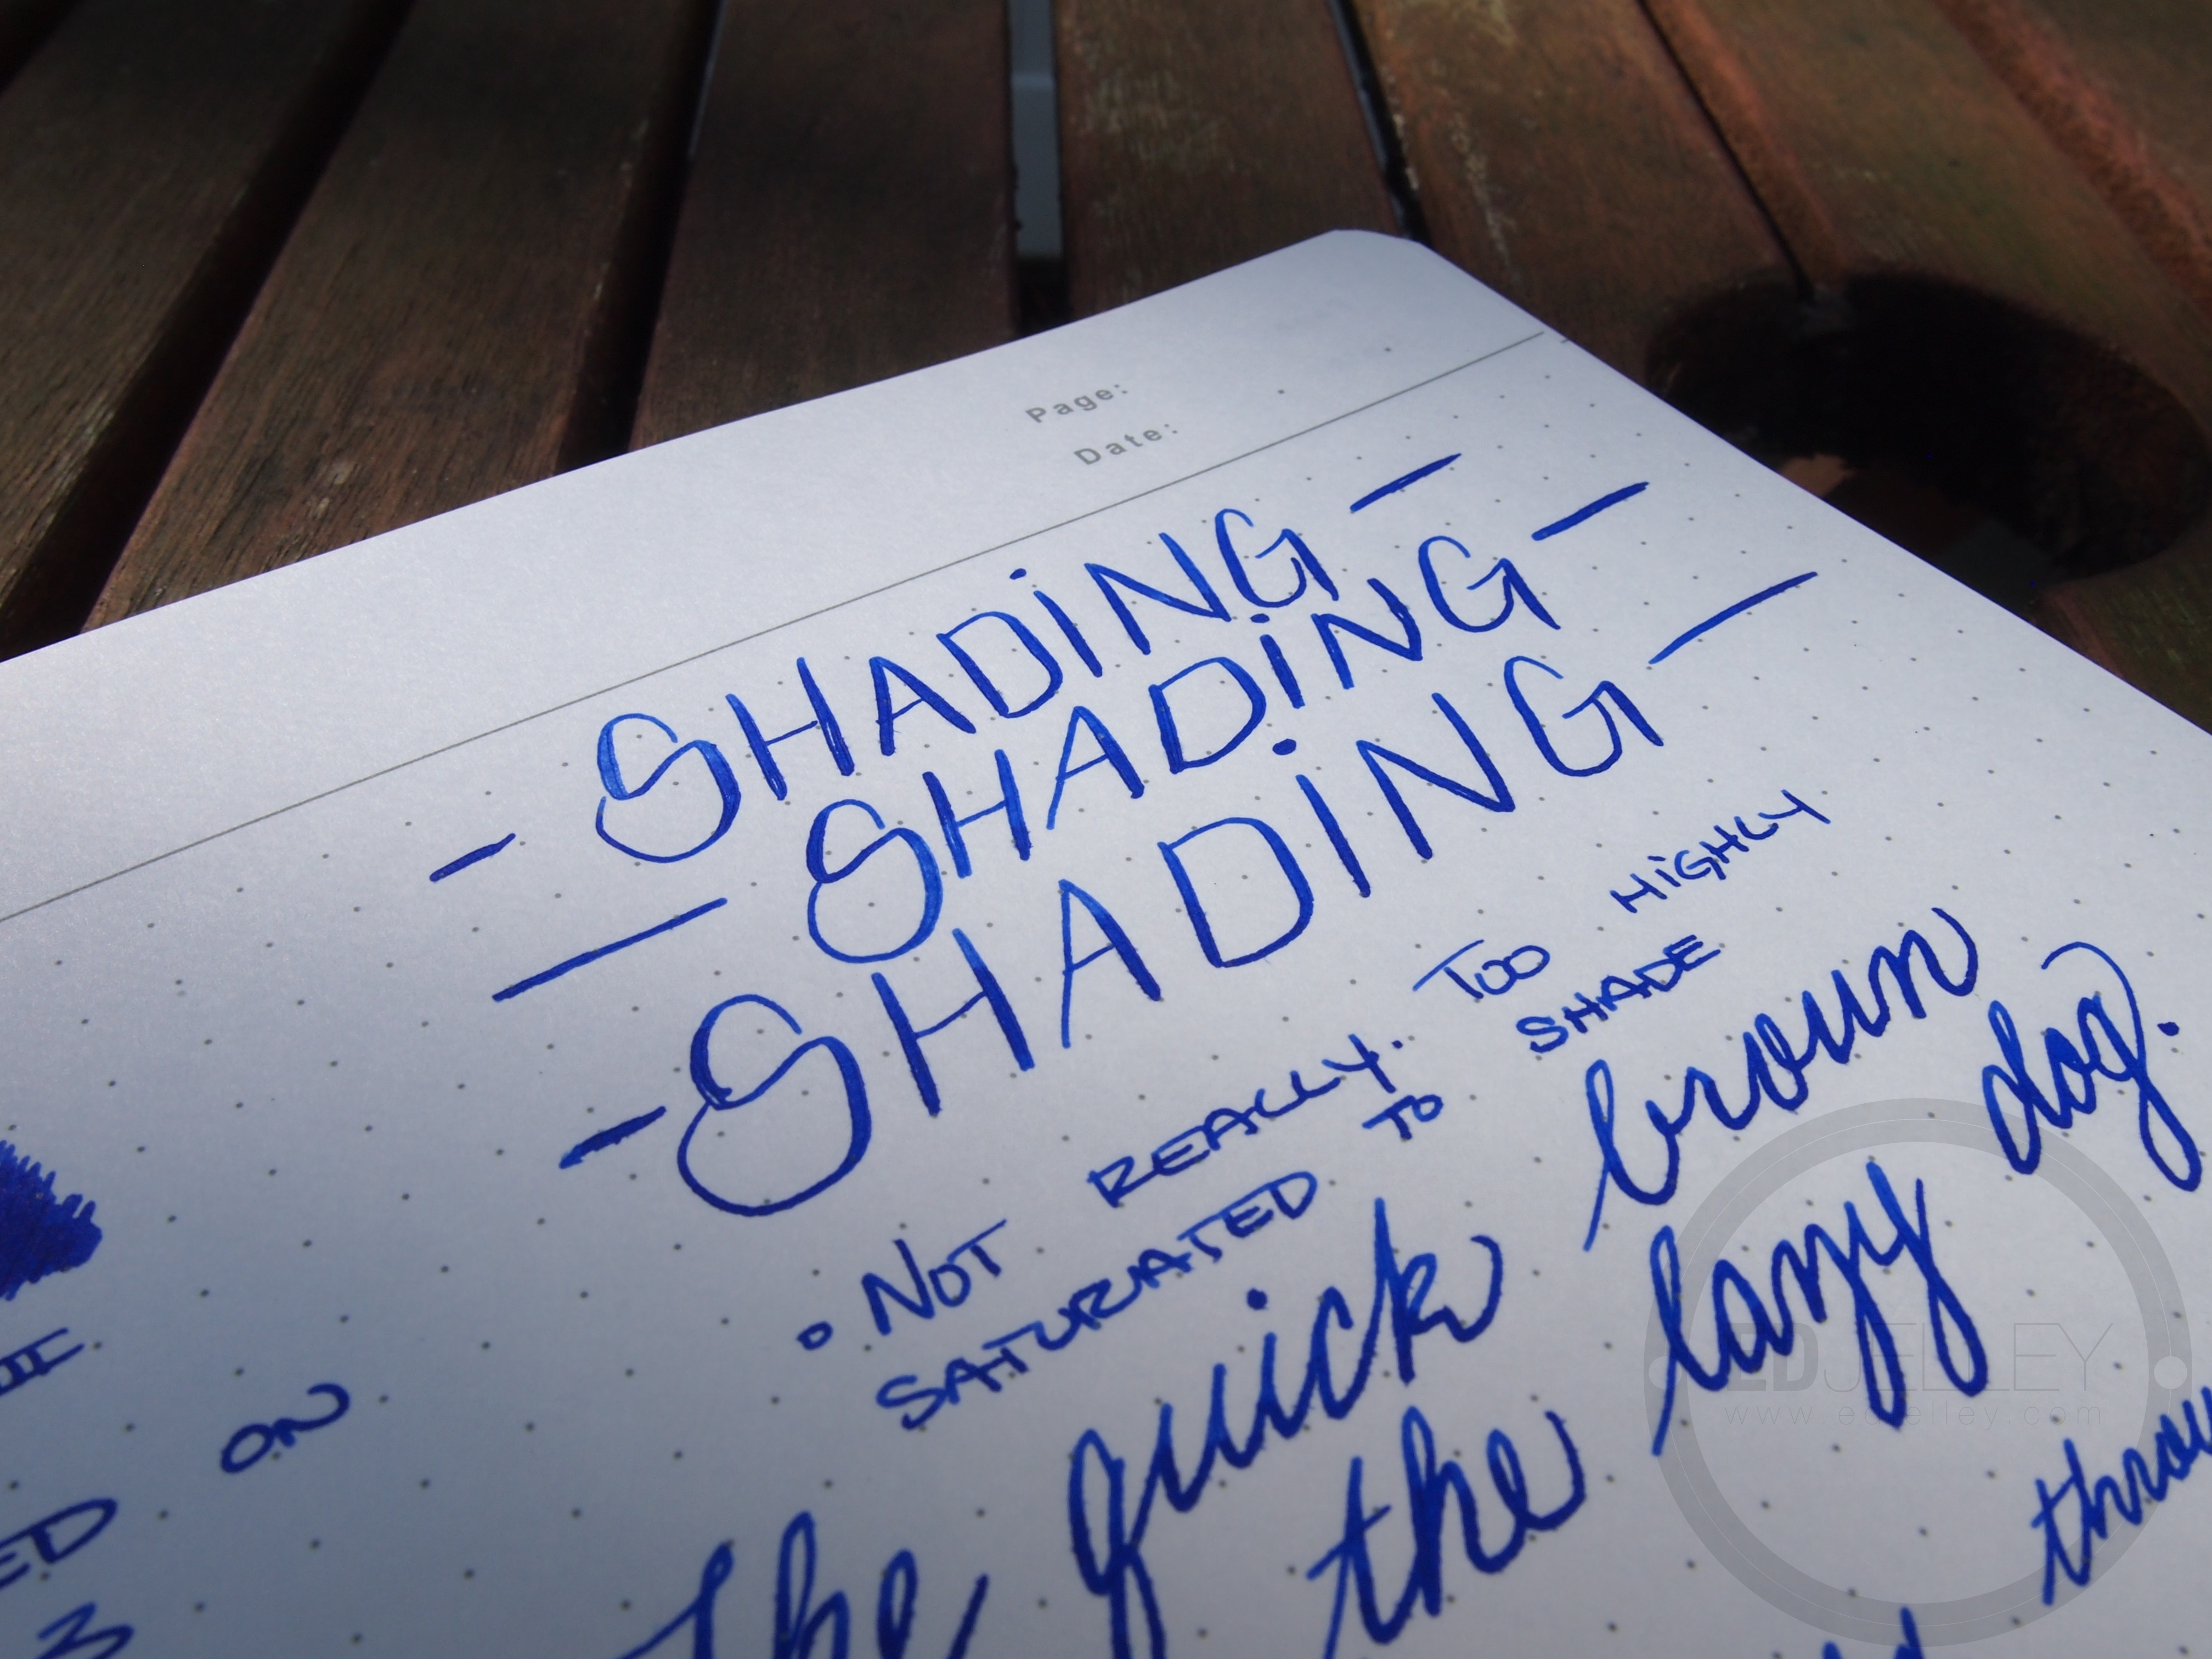 Page:
Date:
- SHADING -
- SHADING -
- SHADING -
NOT REALLY. TOO HIGHLY
SATURATED TO SHADE
The quick brown
the lazy dog.
ON
ED
3
EDJELLEY
www.edjelley.com